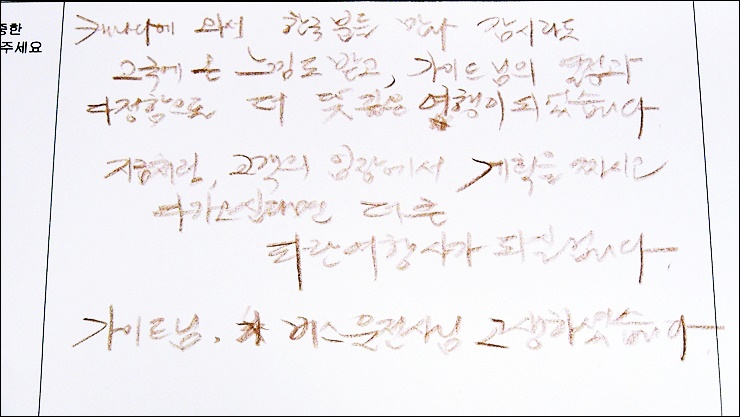 중한
주세요
캐나다에 와서 한국분들 만나 잠시라도
고국에 온 느낌도 받고, 가이드님의 열정과
다정함으로 더 뜻깊은 여행이 되었습니다
지금처럼, 고객의 입장에서 계획을 짜시고
다가오신다면 더 큰
파란여행사가 되실겁니다.
가이드님, 버스운전사님 고생하셨습니다